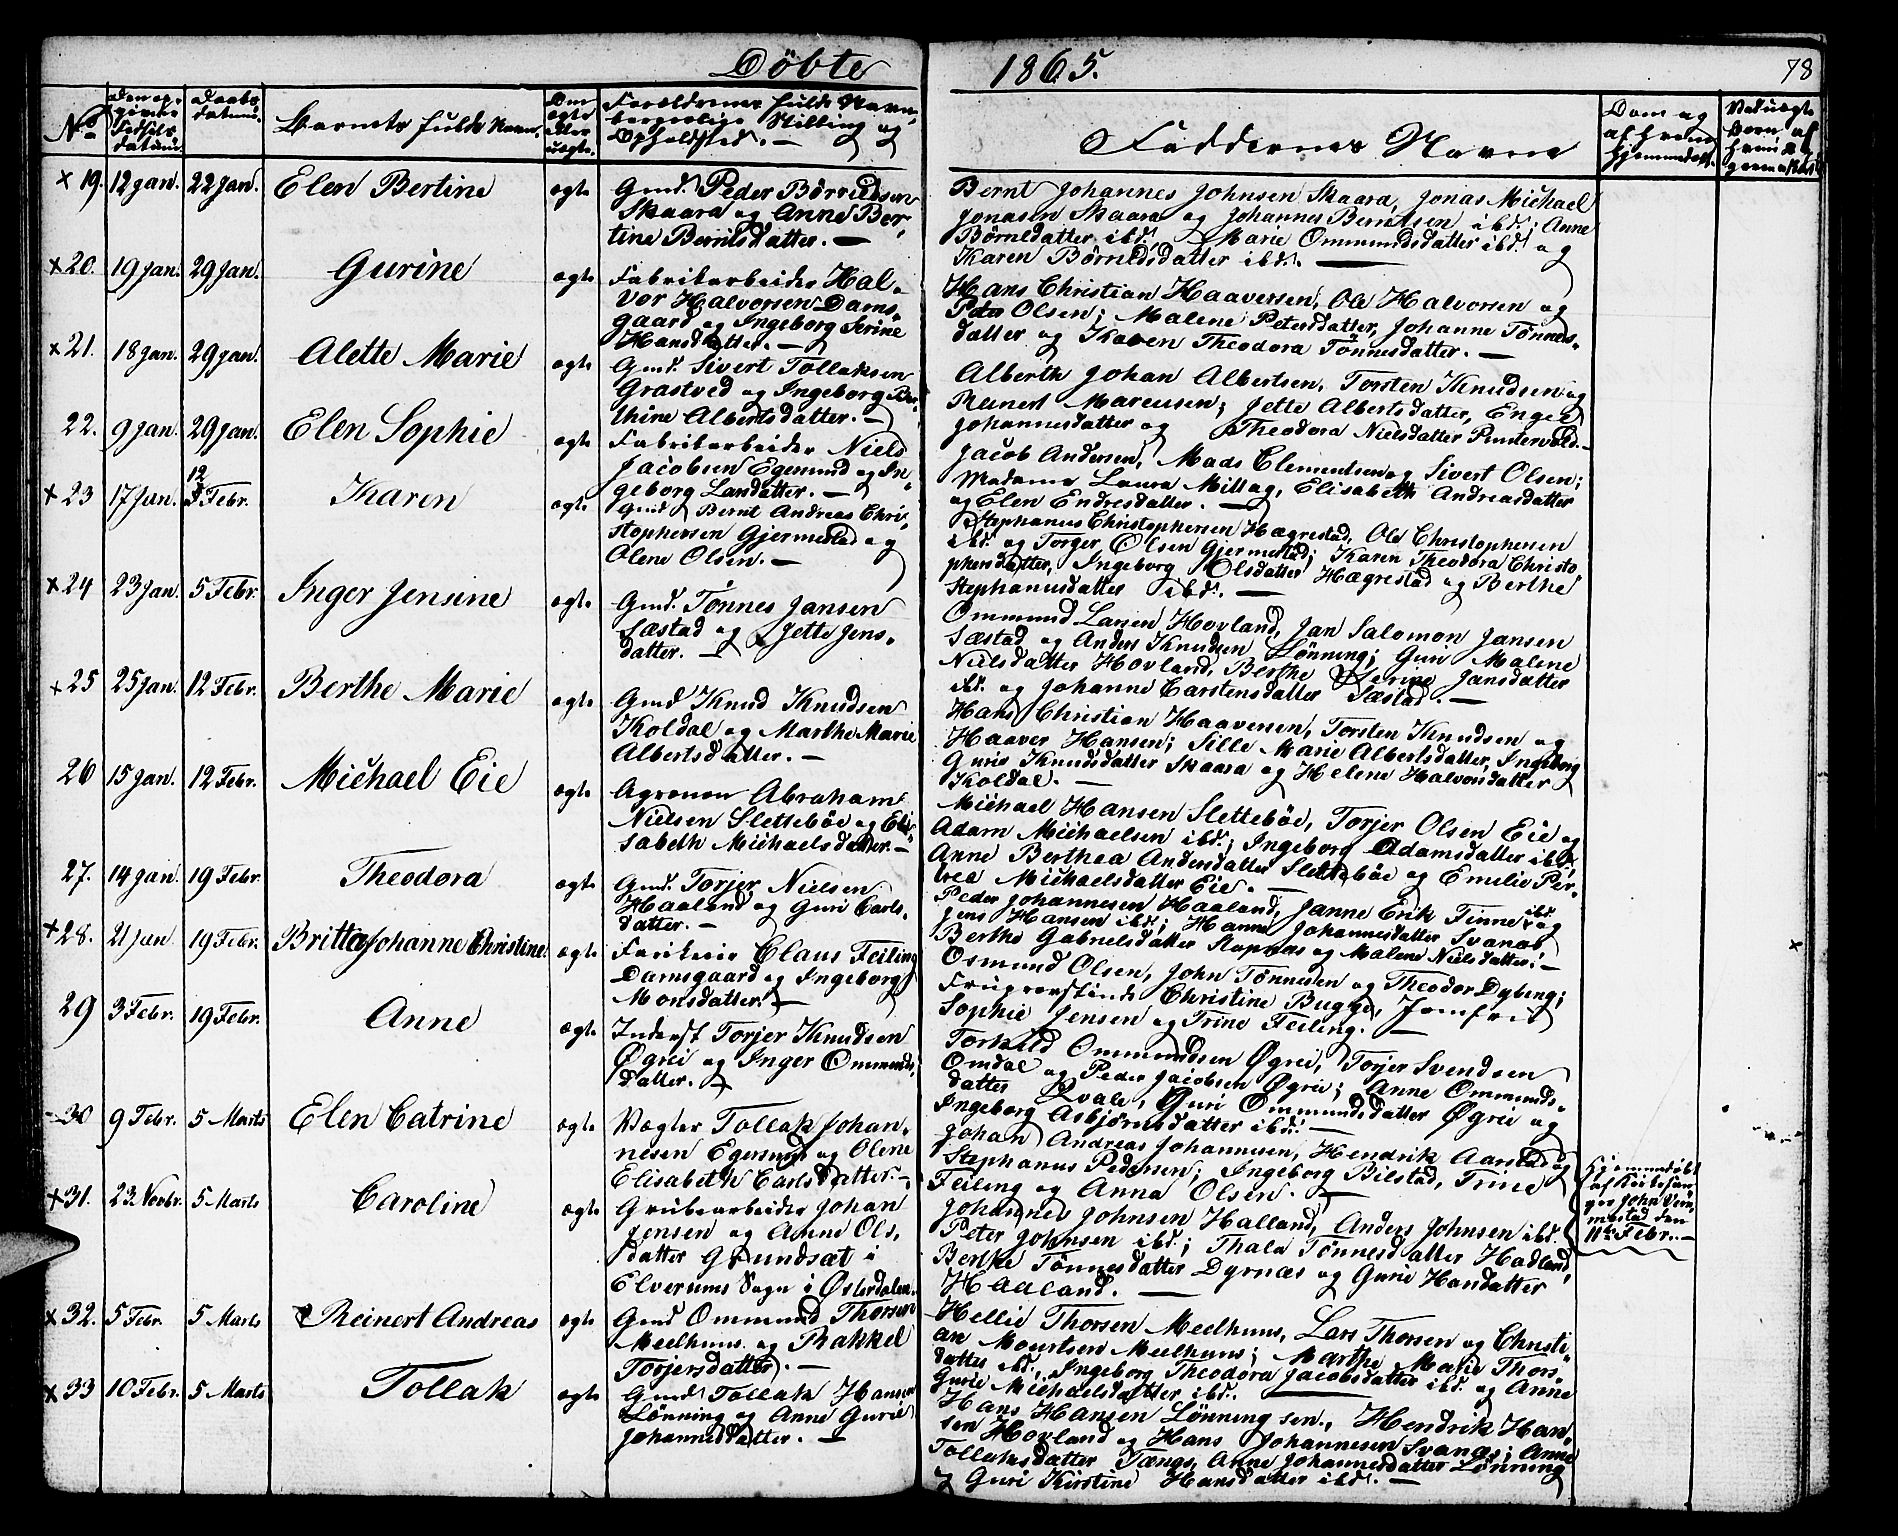 Döbte
1865.
78
No
Den op-
givne
Födsels
datum
Daabs
datum
Barnets fulde Navn.
Om
ægte
eller
uægte.
Forældrenes fulde Navn,
borgerlige Stilling og
Opholdsted. —
Faddernes Navne
Dom og
af hvem
hjemmedöbt.
x 19. 12 Jan. 22 Jan. Elen Bertine ægte
Gmd. Peder Börrildsen
Skaara og Anne Ber-
tine Berntsdatter. —
Bernt Johannes Johnsen Skaara, Jonas Michael
Jonasen Skaara og Johannes Berntsen ibd.; Anne
Börneldatter ibd., Marie Ommundsdatter ibd. og
Karen Börnildsdatter ibd. —
x 20. 19 Jan. 29 Jan. Gurine ægte
Fabrikarbeider Hal-
vor Halvorsen Dams-
gaard og Ingeborg Serine
Hansdatter. —
Hans Christian Haaversen, Ole Halvorsen og
Peter Olsen; Malene Petersdatter, Johanne Tönnes-
datter og Karen Theodora Tönnesdatter. —
x 21. 18 Jan. 29 Jan. Alette Marie ægte
Gmd. Sivert Tollaksen
Grastved og Ingeborg Ber-
thine Albertsdatter. —
Alberth Johan Albertsen, Torsten Knudsen og
Reinert Marcusen; Jette Albertsdatter, Engel
Johannesdatter og Theodora Nielsdatter Puntervold. —
22. 9 Jan. 29 Jan. Elen Sophie ægte
Fabrikarbeider Niels
Jacobsen Egersund og In-
geborg Larsdatter. —
Jacob Andersen, Mads Clemendsen og Sivert Olsen;
Madame Laura Millag, Elisabeth Andreasdatter
og Elen Endresdatter. —
x 23 17 Jan. 12 Febr. Karen ægte
Gmd Bernt Andreas Chri-
stophersen Gjermestad og
Olene Olsen. —
Stephanus Christophersen Hægrestad, Ole Christophersen
ibd. og Torger Olsen Gjermestad; Karen Theodora Christo
phersdatter, Ingeborg Olsdatter Hægrestad og Berthe
Stephanusdatter ibd. —
x 24 23 Jan. 5 Febr. Inger Jensine ægte
Gmd. Tönnes Jansen
Sæstad og Jette Jens-
datter. —
Ommund Larsen Hovland, Jan Salomon Jansen
Sæstad og Anders Knudsen Lönning; Guri Malene
Nielsdatter Hovland, Berthe Serine Jansdatter
ibd. og Johanne Carstensdatter Sæstad. —
x 25 25 Jan. 12 Febr. Berthe Marie ægte
Gmd Knud Knudsen
Koldal og Marthe Marie
Albertsdatter. —
Hans Christian Haaversen, Torsten Knudsen og
Haaver Hansen; Sille Marie Albertsdatter, Ingeborg
Gurie Knudsdatter Skaara og Helene Halvorsdatter
Koldal. —
26 15 Jan. 12 Febr. Michael Eie ægte
Agronon Abraham
Nielsen Sletteböe og Eli-
sabeth Michaelsdatter. —
Michael Hansen Sletteböe, Torjer Olsen Eie og
Adam Michaelsen ibd.; Ingeborg Adamsdatter ibd.,
Anne Berthea Andersdatter Sletteböe og Emelie Per-
trea Michaelsdatter Eie. —
27. 14 Jan. 19 Febr. Theodora ægte
Gmd. Torjer Nielsen
Haaland og Guri Carls-
datter. —
Peder Johannesen Haaland, Janne Erik Tinne ibd. og
Jens Hansen ibd.; Hanne Johannesdatter Svanæs,
Berthe Gabrielsdatter Rapnæs og Malene Nielsdatter. —
x 28. 21 Jan 19 Febr. Britta Johanne Christine. ægte
Claus Feiling
Damsgaard og Ingeborg
Monsdatter. —
Osmund Olsen, John Tönnesen og Theodor Dyring;
Christine Bugge, Jomfru
Sophie Jensen og Trine Feiling. —
29 3 Febr. 19 Febr. Anne ægte
Inderst Torjer Knudsen
Øgrei og Inger Ommunds
datter. —
Torkild Ommundsen Øgrei, Torjer Svendsen
Omdal og Peder Jacobsen Øgrei; Anne Ommunds-
datter Qvale, Guri Ommundsdatter Øgrei og
Ingeborg Asbjörnsdatter ibd. —
30 9 Febr. 5 Marts Elen Catrine ægte
Vægter Tollak Johan-
nesen Egersund og Olene
Elisabeth Carlsdatter. —
Johan Andreas Johannesen, Hendrik Aarstad og
Stephanus Pedersen; Ingeborg Bilstad, Trine
Feiling og Anna Olsen. —
x 31. 23 Novbr. 5 Marts Caroline ægte
Grubearbeider Johan
Jensen og Anne Ols,
datter Grundsæt i
Elverums Sogn i Østerdalen.
Johannes Johnsen Halland, Anders Johnsen ibd.
Peter Johnsen ibd.; Thala Tönnesdatter Hadland,
Berthe Tönnesdatter Dyrnæs og Gurie Hansdatter
Haaland. —
Hjemmedöbt
af Kirkesan-
ger John Vem-
mestad den
11te Febr. —
x 32. 5 Febr. 5 Marts Reinert Andreas ægte
Gmd Ommund Thorsen
Meelhuus og Rakkel
Torjersdatter. —
Hellie Thorsen Meelhuus, Lars Thorsen og Christi-
an Mourtsen Meelhuus; Marthe Marie Thors-
datter ibd. Ingeborg Theodora Jacobsdatter ibd. og Anne
Gurie Michaelsdatter ibd. —
x 33 10 Febr. 5 Marts Tollak ægte
Gmd Tollak Hansen
Lönning og Anne Gurie
Johannesdatter. —
Hans Hansen Lönning sen., Hendrik Han-
sen Hovland og Hans Johannesen Svanæs; Anne
Tollaksdatter Tængs, Anne Johannesdatter Lönning
og Guri Kirstine Hansdatter ibd. —